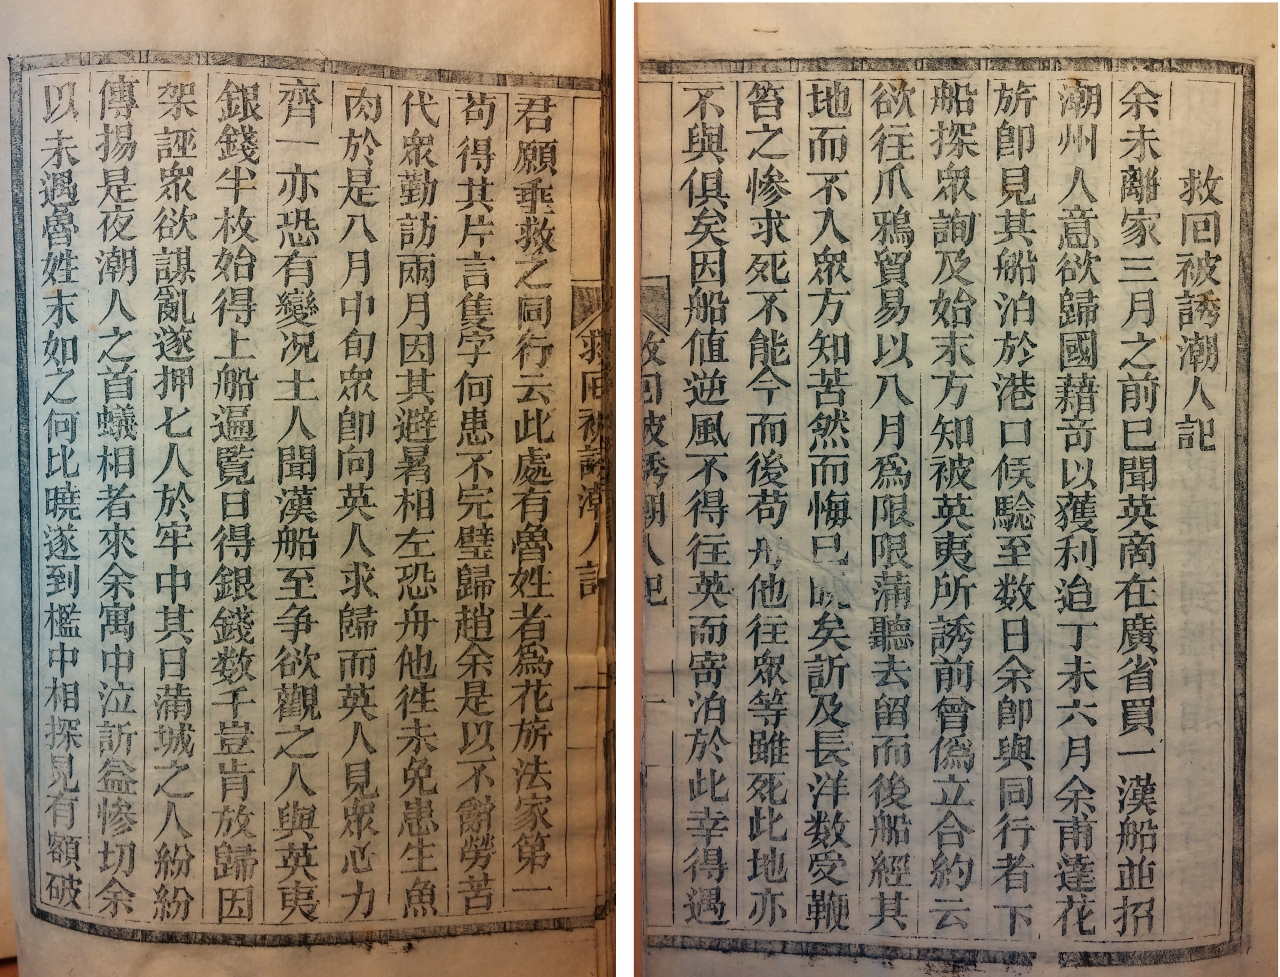 救回被誘潮人記
余未離家三月之前已聞英商在廣省買一漢船並招
潮州人意欲歸國藉竒以獲利迨丁未六月余甫達花
旂卽見其船泊於港口候驗至数日余卽與同行者下
船探眾詢及始末方知被英夷所誘前曾偽立合約云
欲往爪鴉貿易以八月爲限限蒲聽去留而後船經其
地而不入眾方知苦然而悔已晚矣訴及長洋数受鞭
笞之慘求死不能今而後苟舟他往眾等雖死此地亦
不與俱矣因船值逆風不得往英而寄泊於此幸得遇
救回被誘潮人記 一
救回被誘潮人記 一
君願垂救之同行云此處有魯姓者爲花旂法家第一
苟得其片言隻字何患不完璧歸趙余是以不辭勞苦
代眾勤訪兩月因其避暑相左恐舟他徃未免患生魚
肉於是八月中旬眾卽向英人求歸而英人見眾心力
齊一亦恐有變况土人聞漢船至争欲觀之人與英夷
銀錢半枚始得上船遍覧日得銀錢数千豈肯放歸因
架誣眾欲謀亂遂押七人於牢中其日蒲城之人紛紛
傳揚是夜潮人之首蟻相者來余寓中泣訴益慘切余
以未遇魯姓末如之何比曉遂到檻中相探見有額破